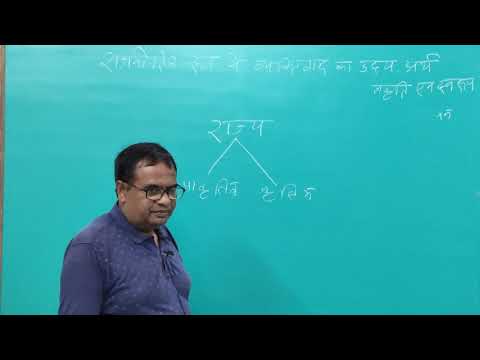 राजनीतिक में व्यक्तिवाद का उदय अर्थ
प्रकृति एवं स्वरूप
राज्य
प्राकृतिक कृत्रिम